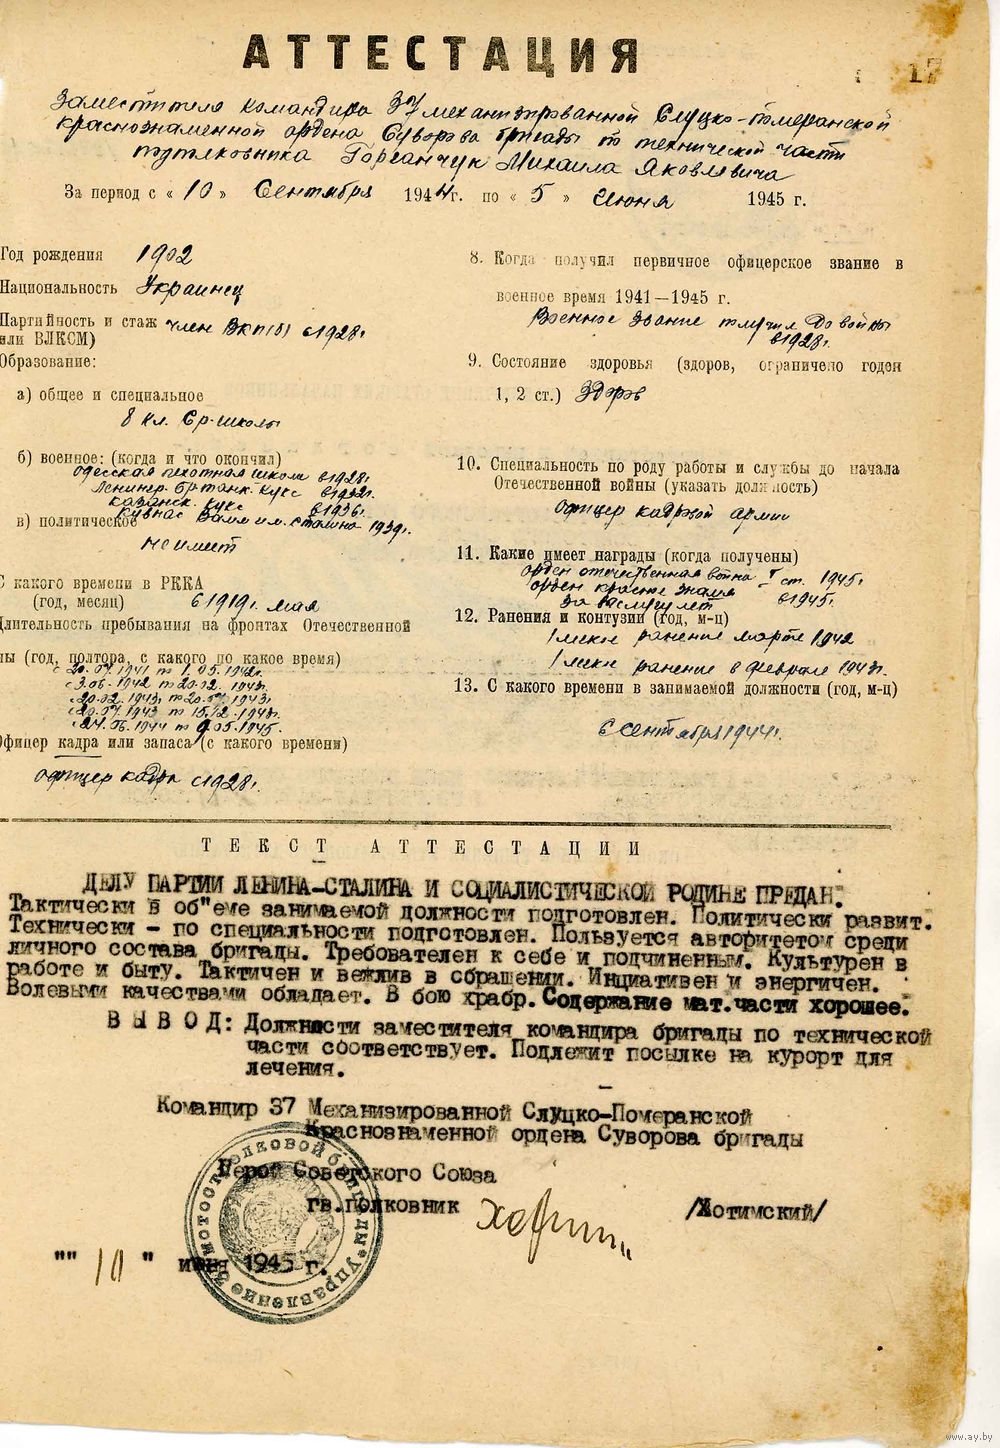 АТТЕСТАЦИЯ
17
Заместителя командира 37 механизированной Слуцко-Померанской
краснознаменной ордена Суворова бригады по технической части
подполковника Михаила Яковлевича
За период с « 10 » Сентября 1944г. по « 5 » Июня 1945 г.
Год рождения 1902
Национальность Украинец
Партийность и стаж член ВКП(б) с 1928г.
или ВЛКСМ)
Образование:
а) общее и специальное
8 кл. Ср. школы
б) военное: (когда и что окончил)
Одесская пехотная школа в 1928г.
Ленингр. бр. танк. КУКС в 1932г.
казанск. КУКС в 1936г.
КУВНАС ВАММ им. Сталина 1939г.
в) политическое
не имеет
С какого времени в РККА
(год, месяц) с 1919г. мая
Длительность пребывания на фронтах Отечественной
ны (год, полтора, с какого по какое время)
с 20.07.1941 по 1.05.1942г.
с 3.06.1942 по 20.02.1943г.
с 20.02.1943г по 20.07.1943г.
с 20.07.1943 по 15.12.1943г.
с 24.06.1944 по 9.05.1945г.
Офицер кадра или запаса (с какого времени)
офицер кадра с 1928г.
8. Когда получил первичное офицерское звание в
военное время 1941—1945 г.
Военное звание получил до войны
в 1928г.
9. Состояние здоровья (здоров, ограничено годен
1, 2 ст.) Здоров
10. Специальность по роду работы и службы до начала
Отечественной войны (указать должность)
офицер кадровой армии
11. Какие имеет награды (когда получены)
орден отечественная война I ст. 1945г.
орден красное знамя
за выслугу лет в 1945г.
12. Ранения и контузии (год, м-ц)
1 легкое ранение марте 1942
1 легкое ранение в феврале 1943г.
13. С какого времени в занимаемой должности (год, м-ц)
с сентября 1944г.
ТЕКСТ АТТЕСТАЦИИ
ДЕЛУ ПАРТИИ ЛЕНИНА-СТАЛИНА И СОЦИАЛИСТИЧЕСКОЙ РОДИНЕ ПРЕДАН.
Тактически в об"еме занимаемой должности подготовлен. Политически развит.
Технически - по специальности подготовлен. Пользуется авторитетом среди
личного состава бригады. Требователен к себе и подчиненным. Культурен в
работе и быту. Тактичен и вежлив в обращении. Инциативен и энергичен.
Волевыми качествами обладает. В бою храбр. Содержание мат.части хорошее.
ВЫВОД: Должности заместителя командира бригады по технической
части соответствует. Подлежит посылке на курорт для
лечения.
Командир 37 Механизированной Слуцко-Померанской
Краснознаменной ордена Суворова бригады
Герой Советского Союза
гв.полковник /Хотимский/
"" 10 " июня 1945 г.
Управление мотострелковой бригады
www.ay.by